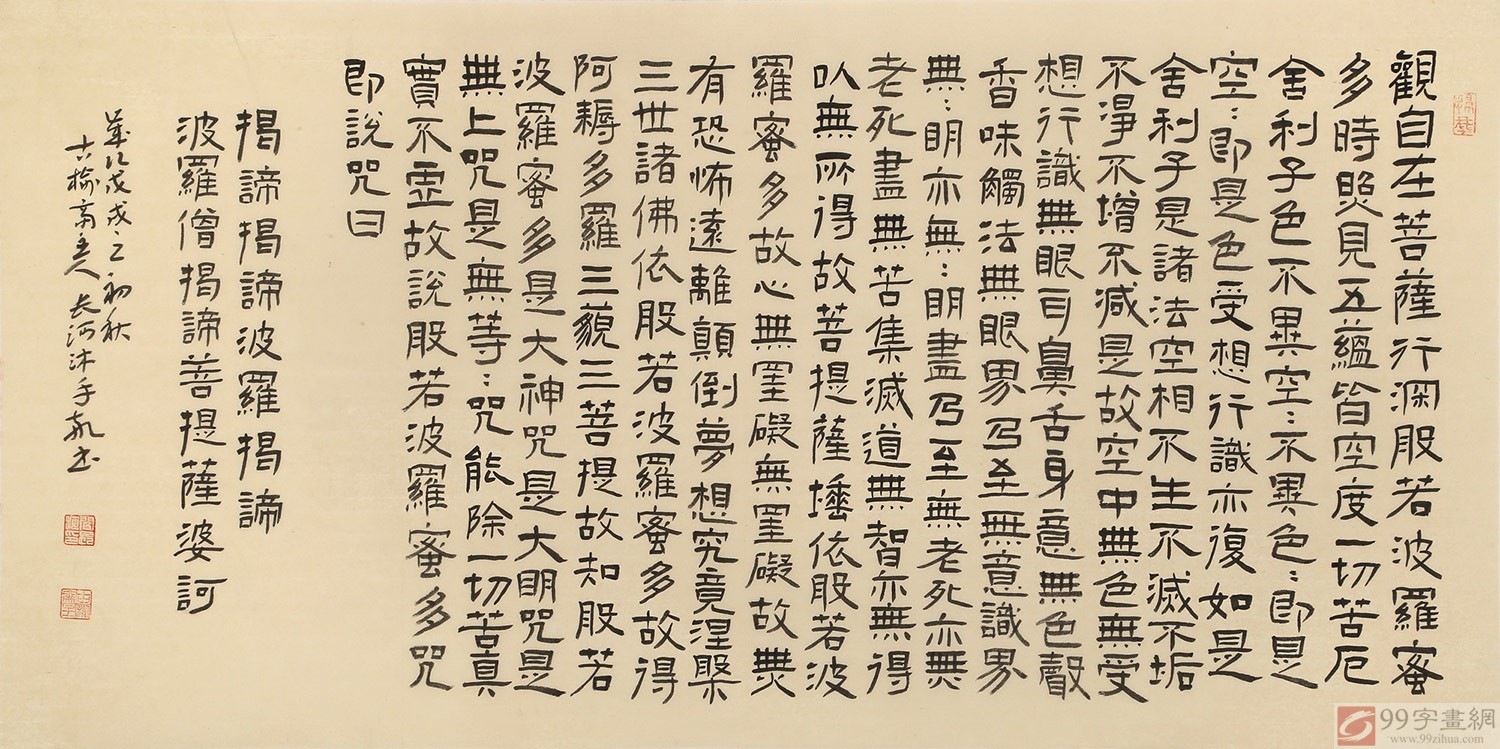 觀自在菩薩行深般若波羅蜜
多時照見五蘊皆空度一切苦厄
舍利子色不異空：不異色：即是
空：即是色受想行識亦復如是
舍利子是諸法空相不生不滅不垢
不淨不增不減是故空中無色無受
想行識無眼耳鼻舌身意無色聲
香味觸法無眼界乃至無意識界
無：明亦無：明盡乃至無老死亦無
老死盡無苦集滅道無智亦無得
以無所得故菩提薩埵依般若波
羅蜜多故心無罣礙無罣礙故無
有恐怖遠離顛倒夢想究竟涅槃
三世諸佛依般若波羅蜜多故得
阿耨多羅三藐三菩提故知般若
波羅蜜多是大神咒是大明咒是
無上咒是無等：咒能除一切苦真
實不虛故說般若波羅蜜多咒
即說咒曰
揭諦揭諦波羅揭諦
波羅僧揭諦菩提薩婆訶
歲次戊戌之初秋
古榆長河沐手敬書
99字畫網
www.99zihua.com